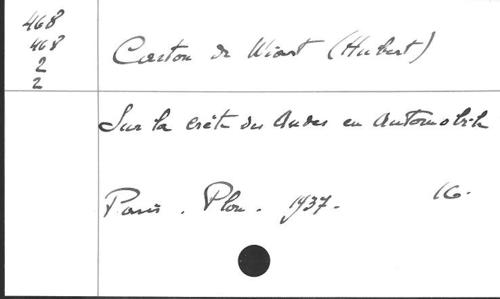 468
468
2
2
Carton de Wiart (Hubert)
Sur la crête des Andes en automobile
Paris. Plon. 1937. 16.